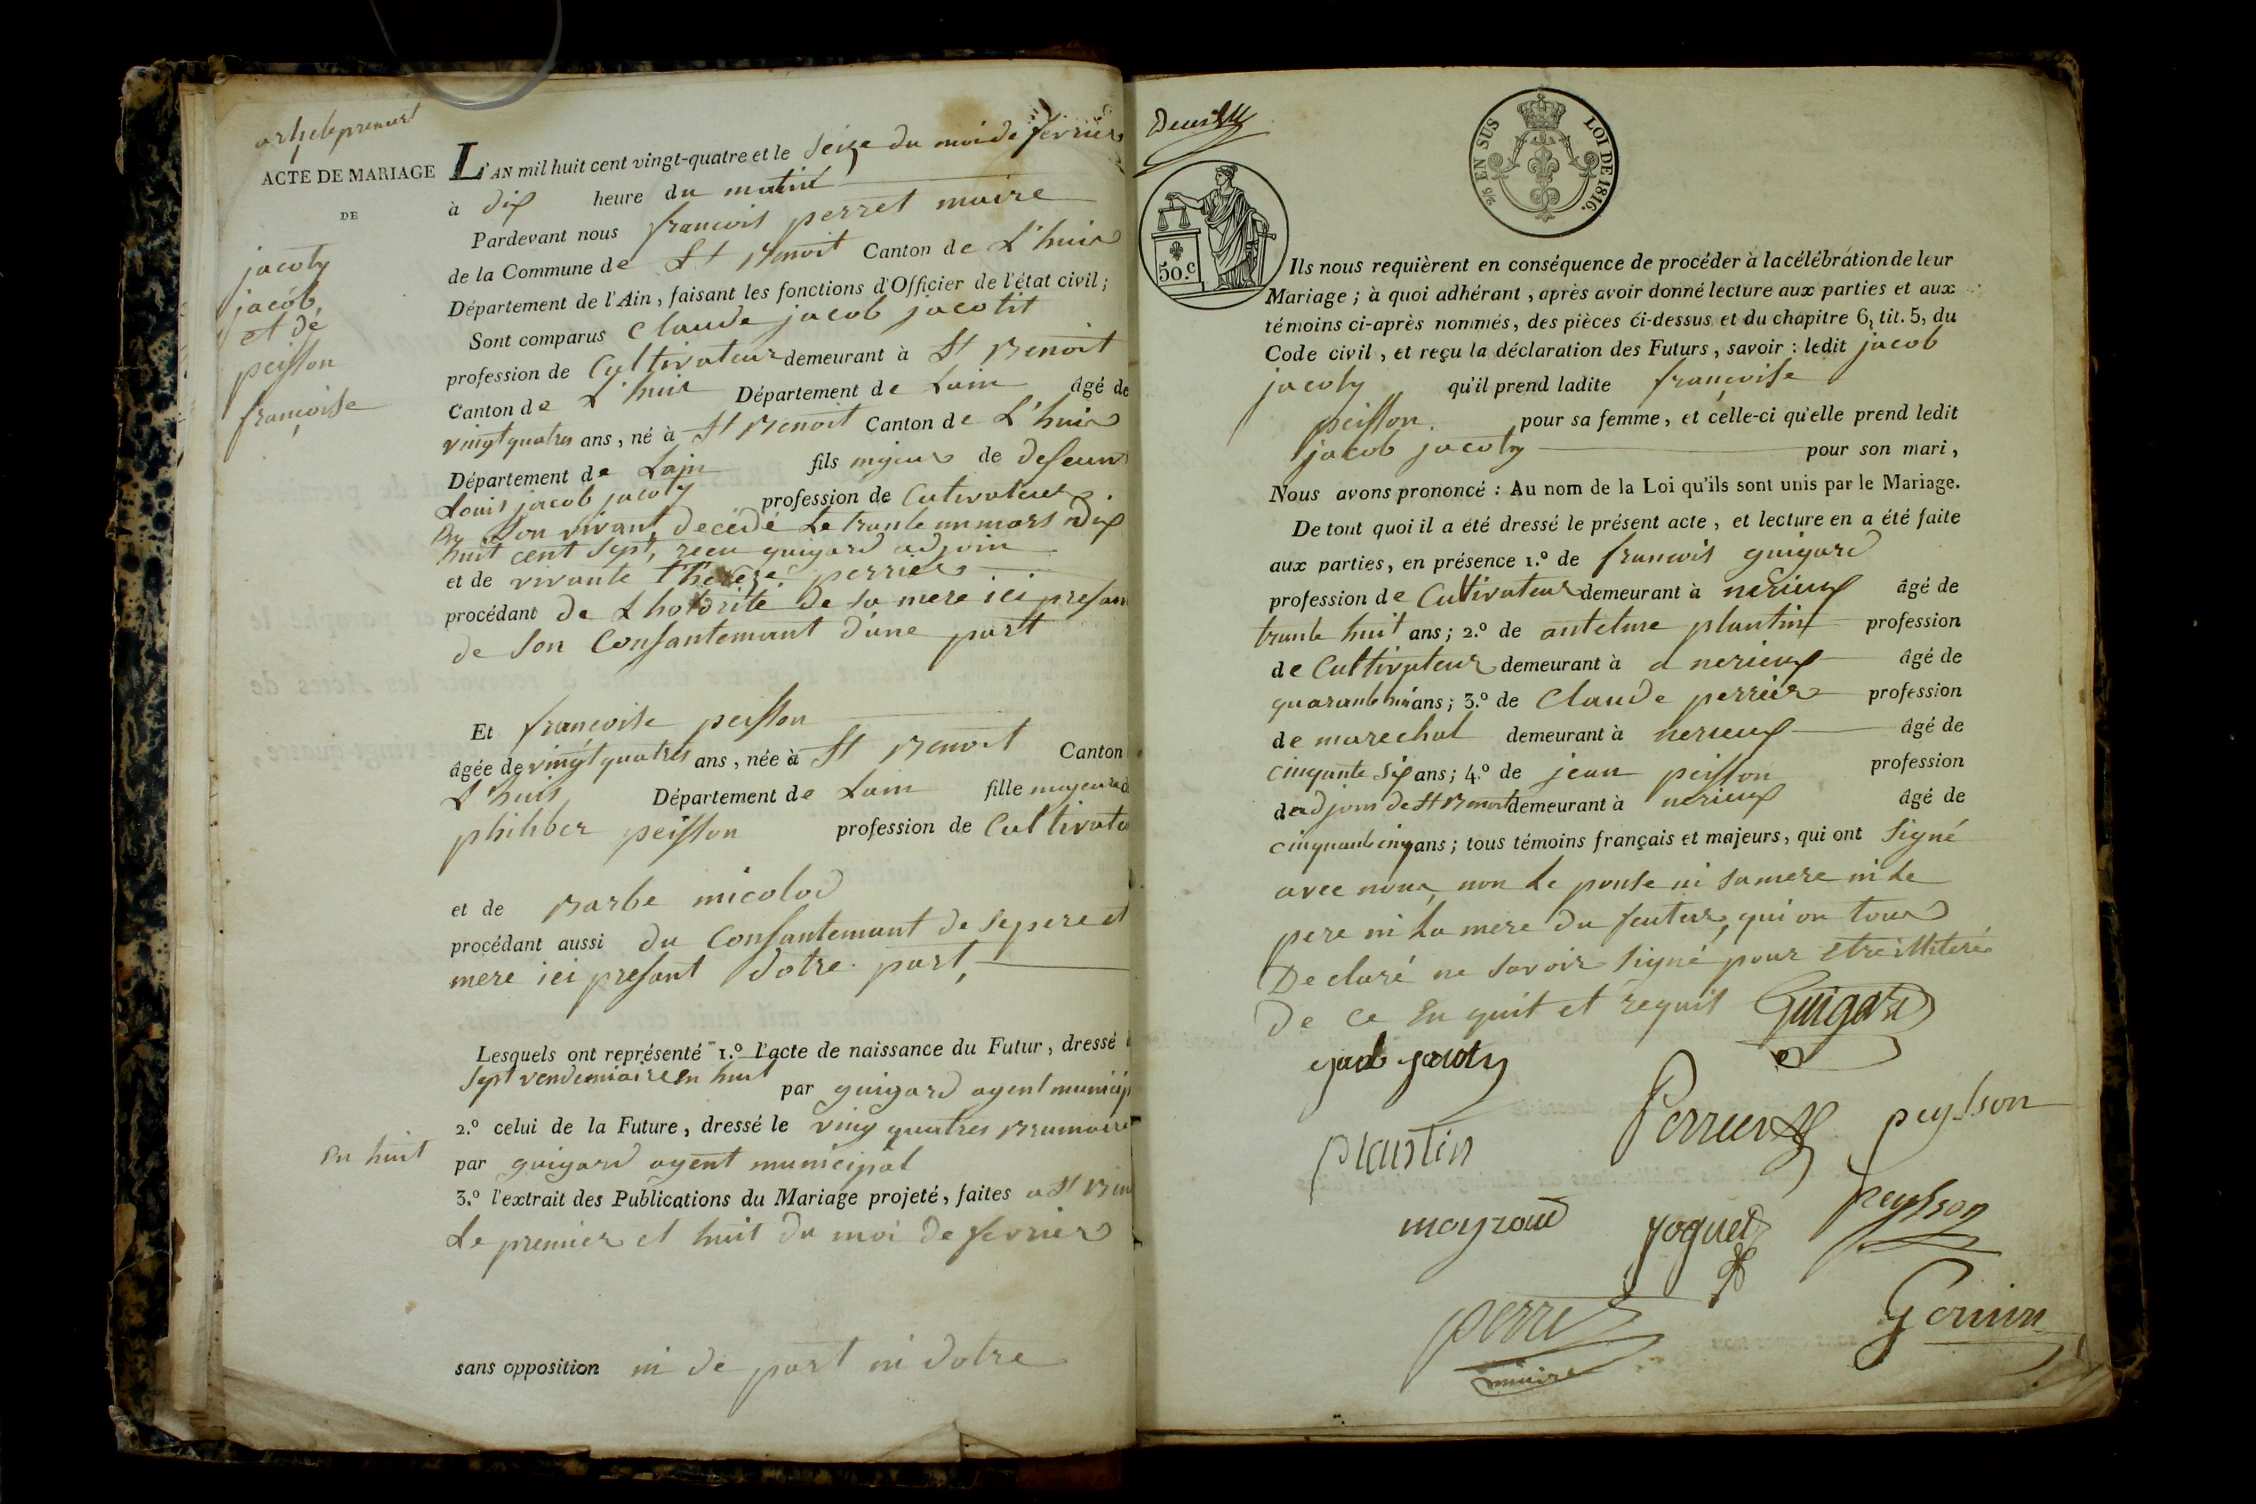 article premiert
ACTE DE MARIAGE
DE
jacoty
jacob
et dé
peisson
françoise
L'AN mil huit cent vingt-quatre et le seize du moi de fevrier
à dix heure du matin
Pardevant nous francois perret maire
de la Commune de St Benoit Canton de L'huis
Département de l'Ain, faisant les fonctions d'Officier de l'état civil;
Sont comparus Claude jacob jacotit
profession de Cultivateur demeurant à St Benoit
Canton de L'huis Département de Lain âgé de
vingt quatres ans, né à St Benoit Canton de L'huis
Département de Lain fils majeur de defeunt
Louis jacob jacoty profession de Cutivateur
En Son vivant, decédé Le trante un mars mdix
huit cent sept, recu guigard adjoin
et de vivante Thereze perrier
procédant de Lhotorité de sa mere ici presan
de son Consantemant d'une part
Et françoise peisson
âgée de vingt quatres ans, née à St Benoit Canton
L'huis Département de Lain fille majeure d
philiber peisson profession de Cultivate
et de Barbe micolod
procédant aussi du Consantemant de se pere et
mere ici presant dotre part,
Lesquels ont représenté 1.º l'acte de naissance du Futur, dressé
sept vendemiaire en huit par guigard agent municip
2.º celui de la Future, dressé le ving quatres Brumaire
en huit
par guigard agent municipal
3.º l'extrait des Publications du Mariage projeté, faites a St Ben
Le premier et huit du moi de fevrier
sans opposition ni de part ni dotre
50.c
25 EN SUS LOI DE 1816.
Ils nous requièrent en conséquence de procéder à la célébration de leur
Mariage; à quoi adhérant, après avoir donné lecture aux parties et aux
témoins ci-après nommés, des pièces ci-dessus et du chapitre 6, tit. 5, du
Code civil, et reçu la déclaration des Futurs, savoir: ledit jacob
jacoty qu'il prend ladite françoise
peisson. pour sa femme, et celle-ci qu'elle prend ledit
jacob jacoty pour son mari,
Nous avons prononcé: Au nom de la Loi qu'ils sont unis par le Mariage.
De tout quoi il a été dressé le présent acte, et lecture en a été faite
aux parties, en présence 1.º de francois guigard
profession de Cultivateur demeurant à nerieux âgé de
trante huit ans; 2.º de antelme plantin profession
de Cultivateur demeurant à a nerieux âgé de
quarante ans; 3.º de Claude perrier profession
de marechal demeurant à nerieux âgé de
cinquante six ans; 4.º de jean peisson profession
de adjoin de St Benoit demeurant à nerieux âgé de
cinquante cinq ans; tous témoins français et majeurs, qui ont signé
avec nous, non Le pouse ni sa mere ni Le
pere ni La mere du feuteur, qui on tous
Declaré ne savoir signé pour etre illiteré
de ce En quit et requit Guigard
jacob jacoty
plantin
Perrier
peysson
mayzoud
yoguet
peysson
perret
maire